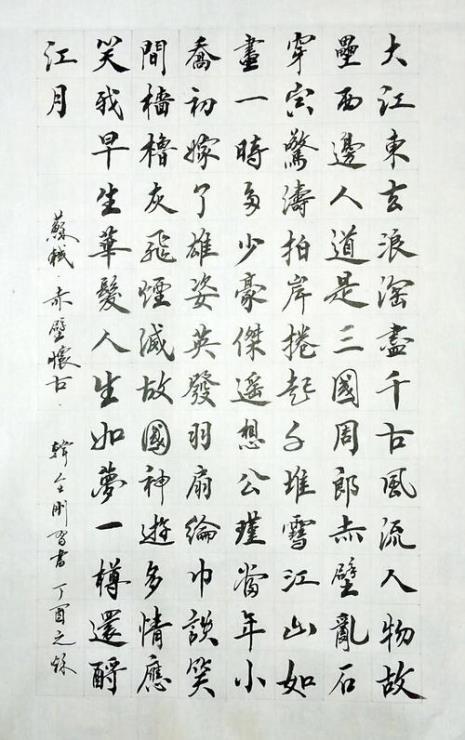 大江東去浪淘盡千古風流人物故
壘西邊人道是三國周郎赤壁亂石
穿空驚濤拍岸捲起千堆雪江山如
畫一時多少豪傑遥想公瑾當年小
喬初嫁了雄姿英發羽扇綸巾談笑
間檣櫓灰飛煙滅故國神遊多情應
笑我早生華髮人生如夢一樽還酹
江月
蘇軾·赤壁懷古· 書丁酉之秋